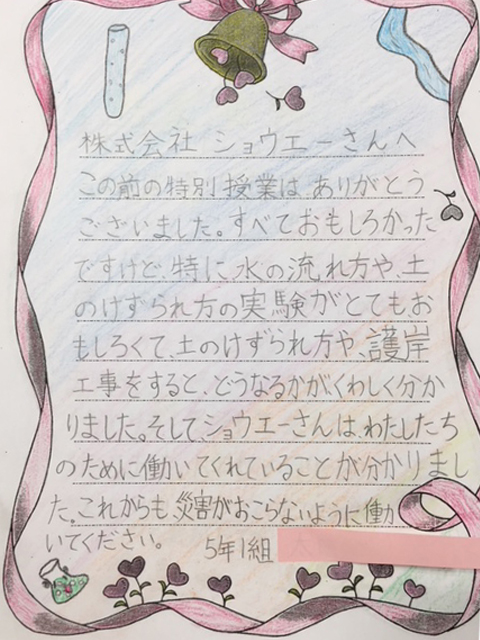 株式会社 ショウエーさんへ
この前の特別授業は、ありがとう
ございました。すべておもしろかった
ですけど、特に、水の流れ方や、土
のけずられ方の実験がとてもお
もしろくて、土のけずられ方や、護岸
工事をすると、どうなるかがくわしく分か
りました。そして、ショウエーさんは、わたしたち
のために働いてくれていることが分かりまし
た。これからも、災害がおこらないように働
いてください。 5年1組